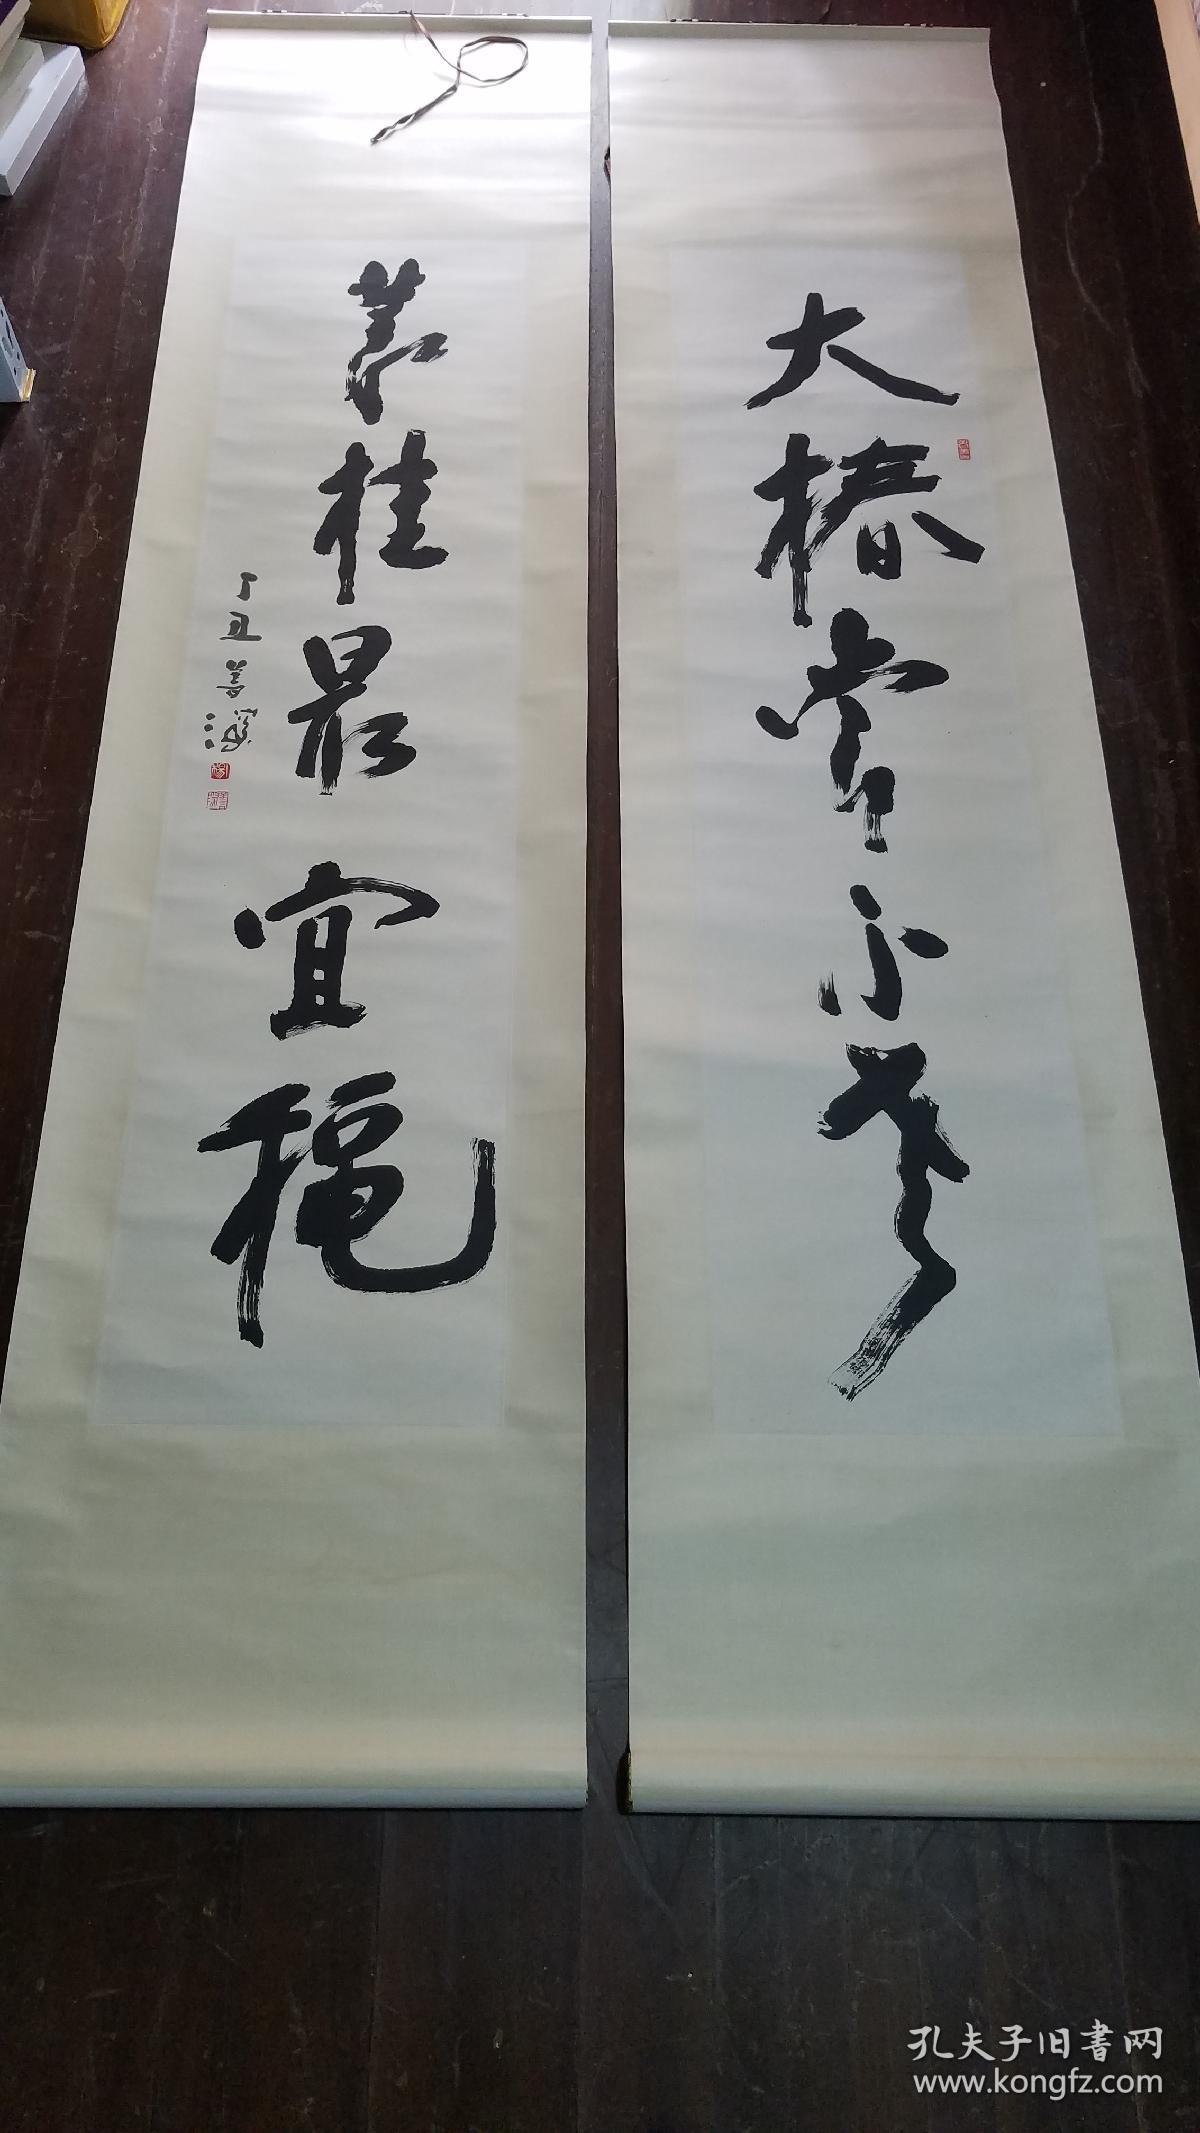 大椿常不老
叢桂最宜穐
丁丑善深
楊
孔夫子旧書网
www.kongfz.com